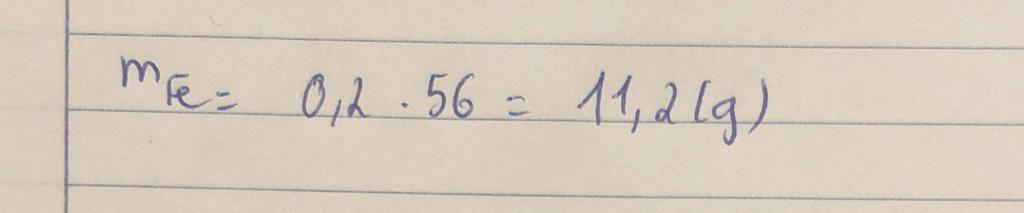 mFe = 0,2 . 56 = 11,2 (g)